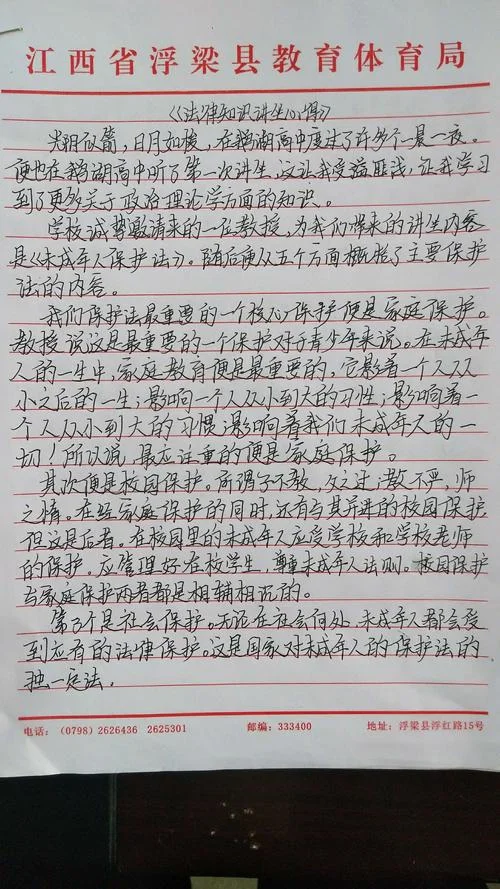 江西省浮梁县教育体育局
《法律知识讲坐心得》
光阴似箭，日月如梭，在鹅湖高中度过了许多个一晨一夜。
便也在鹅湖高中听了第一次讲坐，这让我受益匪浅，让我学习
到了更多关于政治理论学方面的知识。
学校诚挚邀请来的一位教授，为我们带来的讲坐内容
是《未成年人保护法》。随后便从五个方面概括了主要保护
法的内容。
我们保护法最重要的一个核心保护便是家庭保护。
教授说这是最重要的一个保护对于青少年来说。在未成年
人的一生中，家庭教育便是最重要的，它影着一个人从
小之后的一生；影响一个人从小到大的习性；影响着一
个人从小到大的习惯；影响着我们未成年人的一
切！所以说，最应注重的便是家庭保护。
其次便是校园保护。所谓子不教，父之过；教不严，师
之惰。在经家庭保护的同时，还有与其并进的校园保护
但这是后者。在校园里的未成年人应受学校和学校老师
的保护，应管理好在校学生，尊重未成年人法则。校园保护
与家庭保护两者都是相辅相沉的。
第3个是社会保护。无论在社会何处，未成年人都会受
到应有的法律保护。这是国家对未成年人的保护法的
独一定法。
电话：（0798）2626436 2625301 邮编：333400 地址：浮梁县浮红路15号